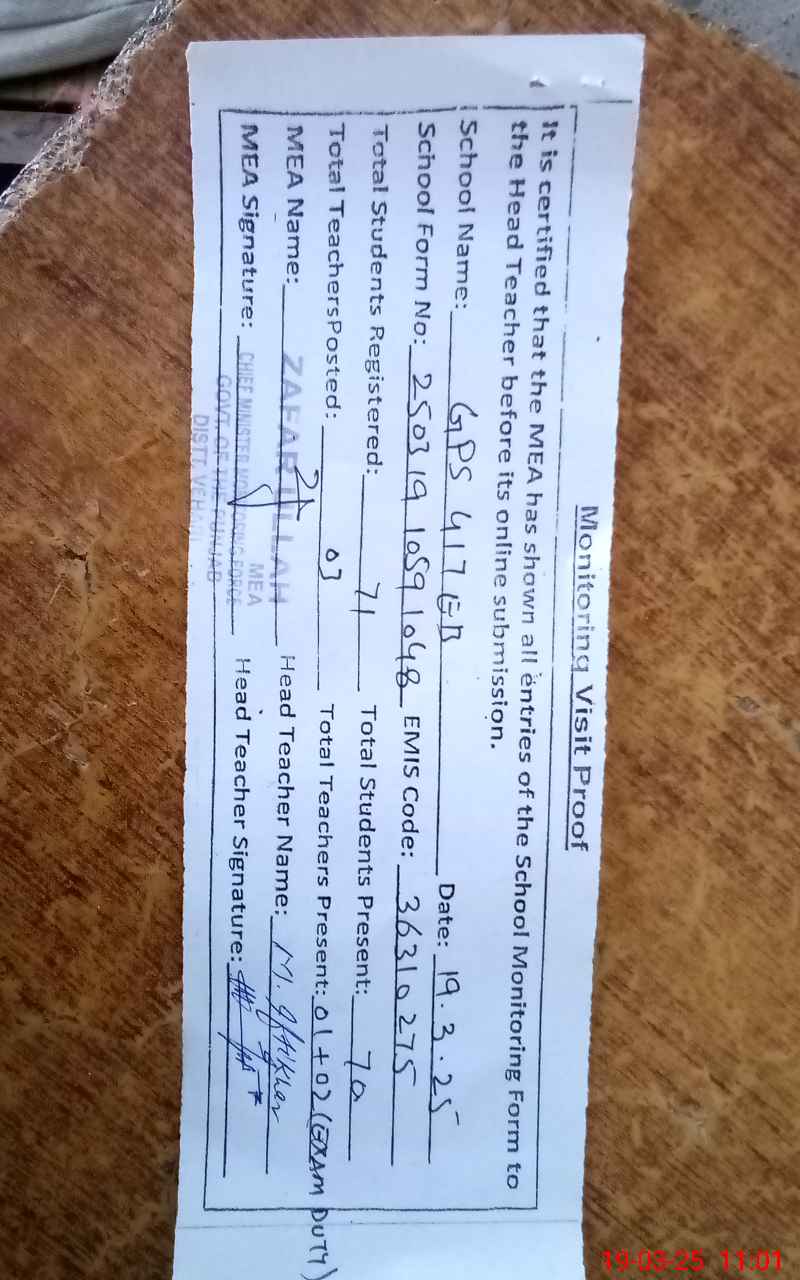 Monitoring Visit Proof
It is certified that the MEA has shown all entries of the School Monitoring Form to
the Head Teacher before its online submission.
School Name: GPS 417 EB Date: 19.3.25
School Form No: 250319 1059 1048 EMIS Code: 36310275
Total Students Registered: 71 Total Students Present: 70
Total TeachersPosted: 03 Total Teachers Present: 01+02 (EXAM DUTY)
MEA Name: ZAFAR ULLAH Head Teacher Name: M. Iftikhar
MEA
MEA Signature: CHIEF MINISTER MONITORING FORCE Head Teacher Signature:
GOVT. OF THE PUNJAB
DISTT. VEHARI
19-03-25 11:01